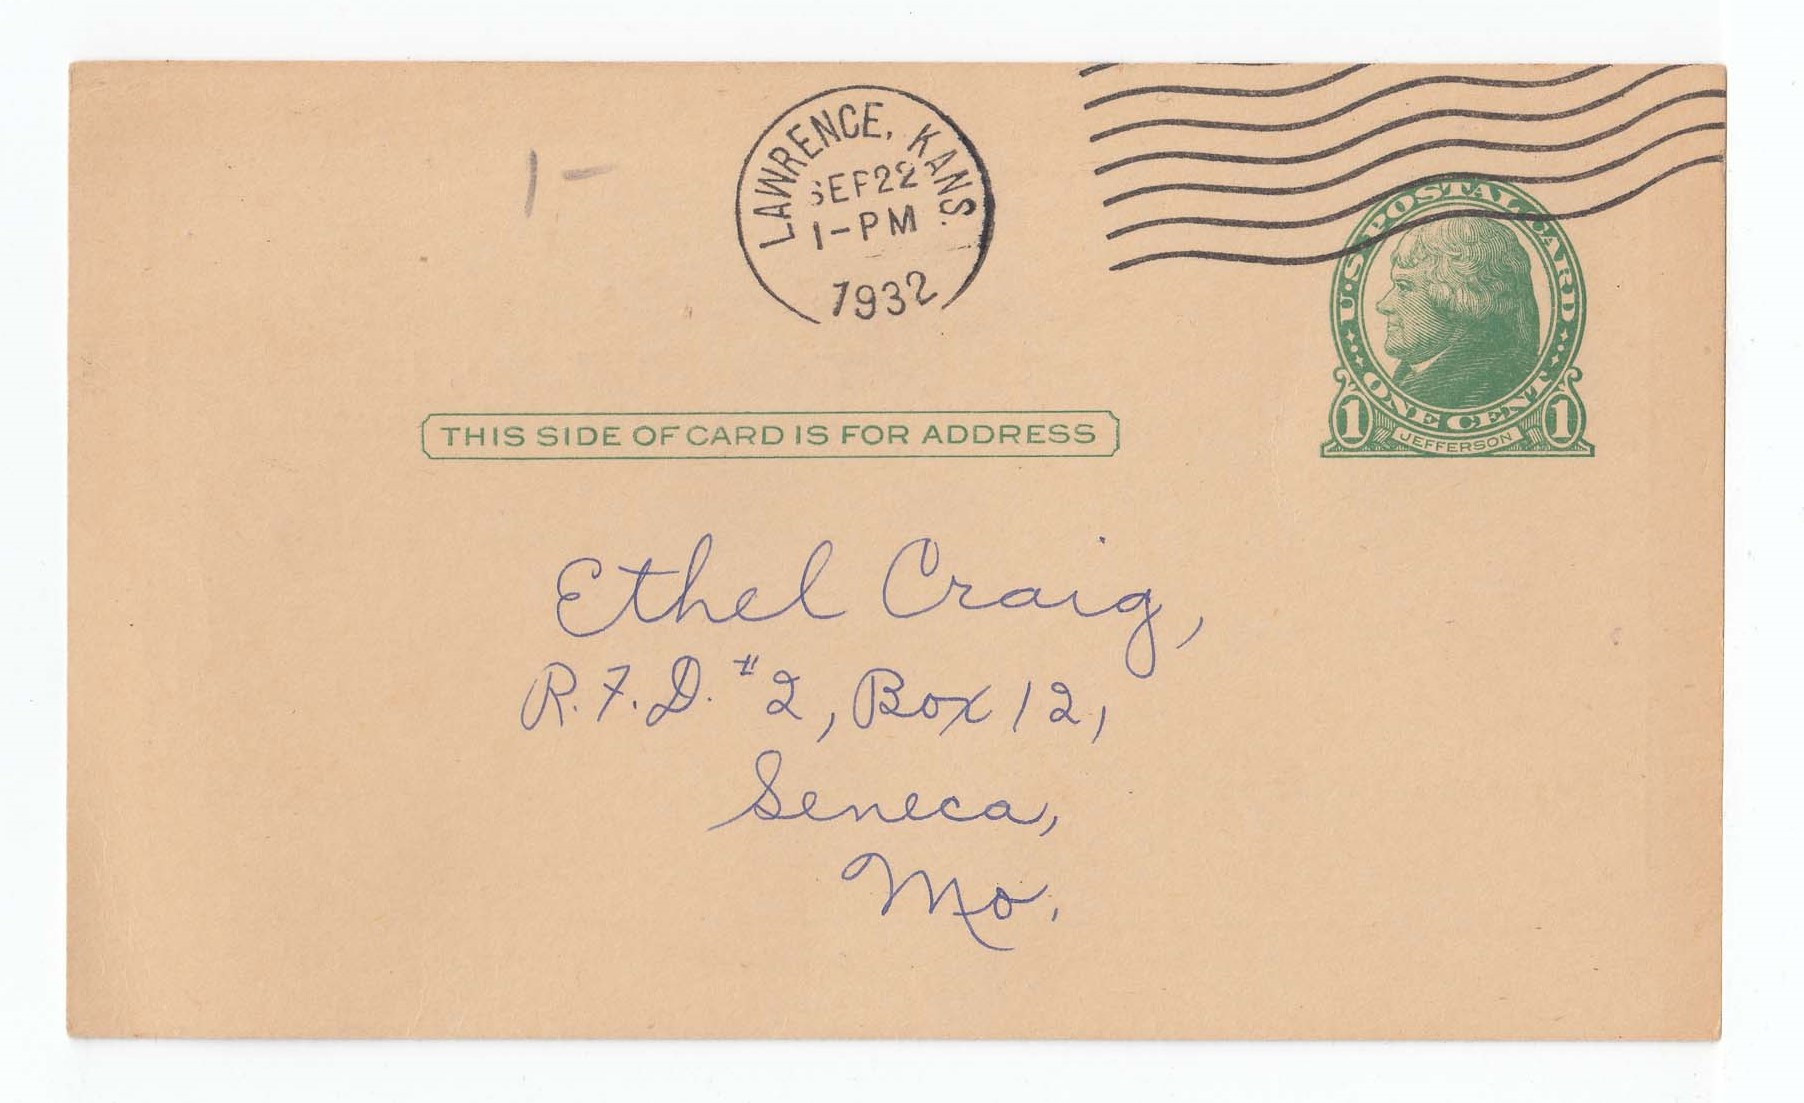 1 -
LAWRENCE, KANS.
SEP 22
1-PM
1932
U.S. POSTAL CARD
ONE CENT
1 JEFFERSON 1
THIS SIDE OF CARD IS FOR ADDRESS
Ethel Craig,
R.F.D. #2, Box 12,
Seneca,
Mo.